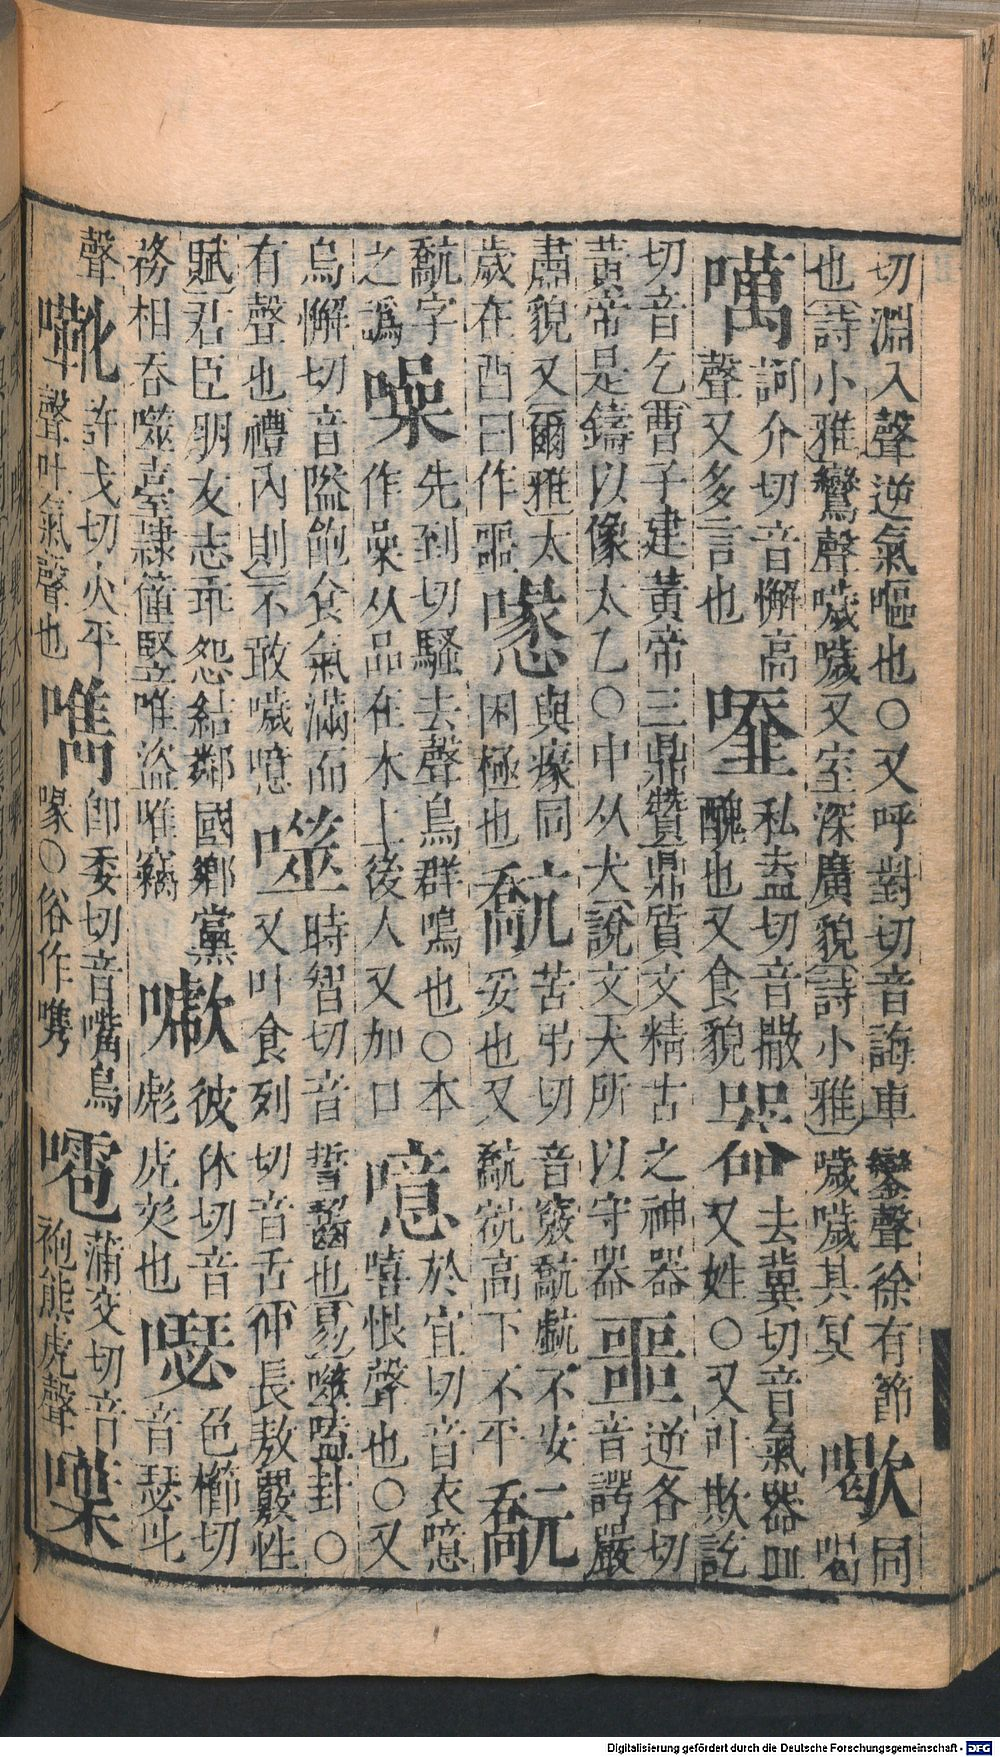 切淵入聲逆氣嘔也〇又呼對切音誨車鑾聲徐有節噷同
也詩小雅鸞聲噦噦又室深廣貌詩小雅噦噦其冥
噧訶介切音懈高聲又多言也
㗔私盍切音㩉醜也又食貌
器去冀切音氣器皿又姓〇又叶欺訖
切音乞曹子建黃帝三鼎贊鼎質文精古之神器
黃帝是鑄以像太乙〇中从犬說文犬所以守器
噩逆各切音諤嚴肅貌又爾雅太歲在酉曰作噩
喙與瘃同困極也
苦弔切音竅不安也又高下不平
字之譌
噪先到切騷去聲鳥群鳴也〇本作喿从品在木上後人又加口
噫於宜切音衣噫嘻恨聲也〇又烏懈切音隘飽食氣滿而有聲也禮內則不敢噦噫
噬時智切音誓齧也易噬嗑卦〇又叶食列切音舌仲長敖覈性賦君臣朋友志乖怨結鄰國鄉黨務相吞噬臺隸僮豎唯盜唯竊
彼休切音彪虎炎也
色櫛切音瑟叱聲
許戈切火平聲吐氣聲也
㗱即委切音嘴鳥喙〇俗作嘴
蒲交切音袍熊虎聲
噗